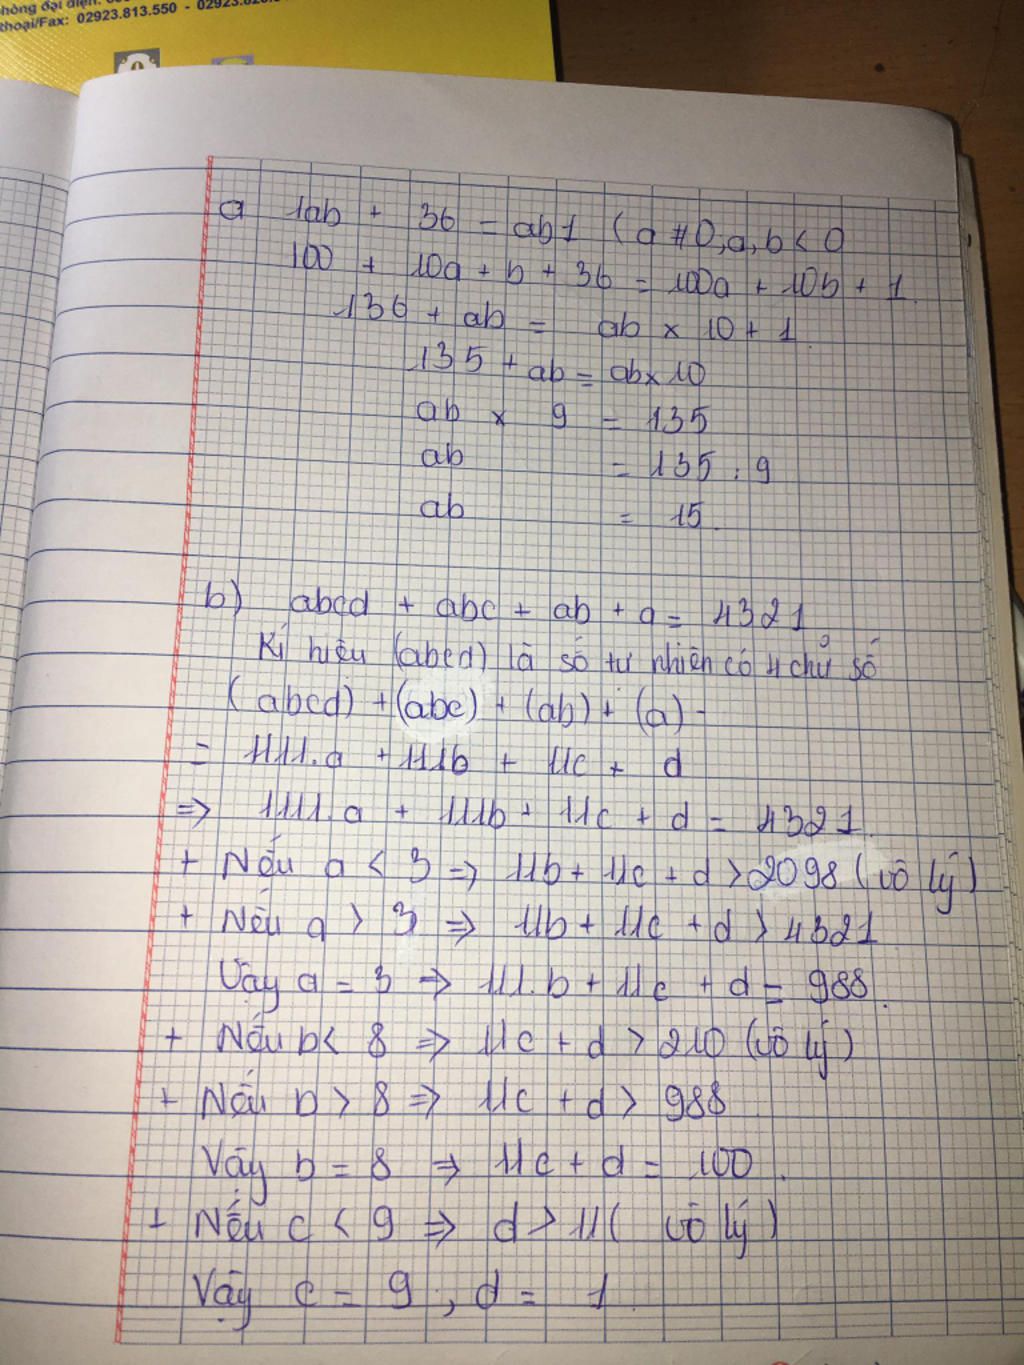 phòng đại diện:
thoại/Fax: 02923.813.550 - 02923.820.
a 1ab + 36 = ab1 ( a # 0, a, b < 0
100 + 10a + b + 36 = 100a + 10b + 1.
136 + ab = ab x 10 + 1.
135 + ab = ab x 10
ab x 9 = 135
ab = 135 : 9
ab = 15.
b) abcd + abc + ab + a = 4321
Kí hiệu (abcd) là số tự nhiên có 4 chữ số
(abcd) + (abc) + (ab) + (a) -
= 1111.a + 111b + 11c + d
=> 1111.a + 111b + 11c + d = 4321.
+ Nếu a < 3 => 11b + 11c + d > 2098 (vô lý)
+ Nếu a > 3 => 11b + 11c + d > 4321
Vậy a = 3 => 111.b + 11c + d = 988.
+ Nếu b < 8 => 11c + d > 210 (vô lý)
+ Nếu b > 8 => 11c + d > 988
Vậy b = 8 => 11c + d = 100.
+ Nếu c < 9 => d > 11 ( vô lý)
Vậy c = 9 ; d = 1